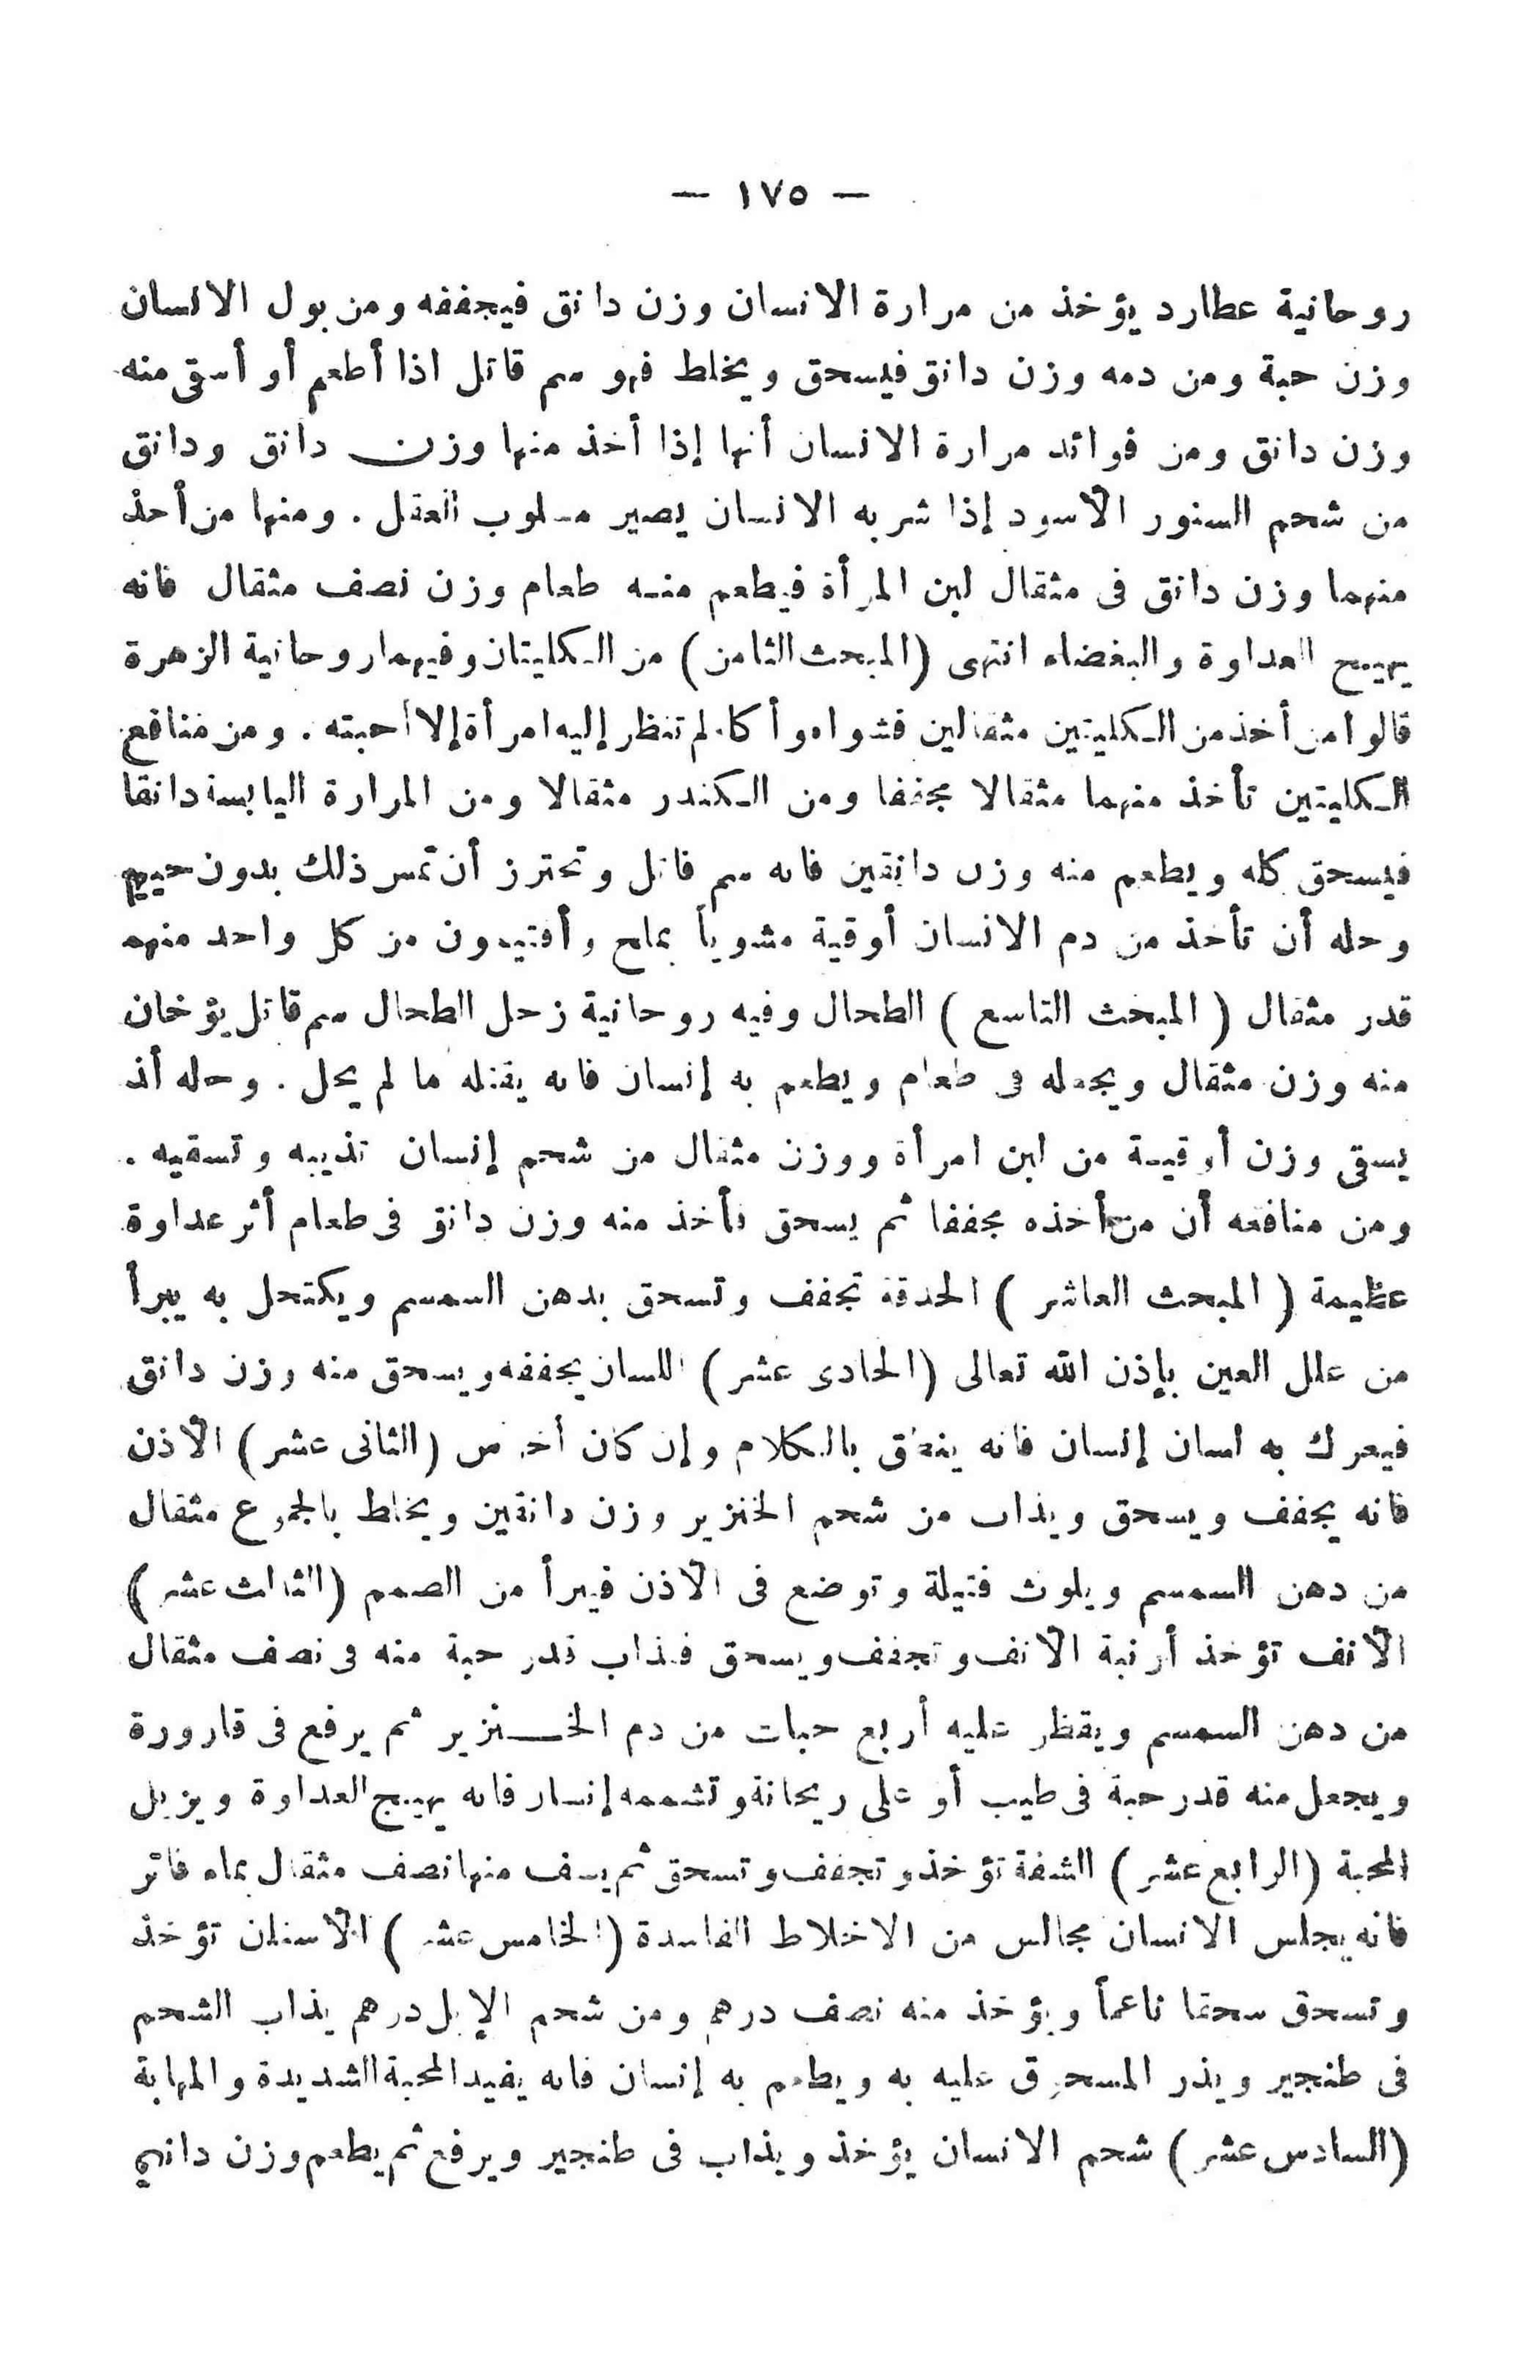 — ١٧٥ —
روحانية عطارد يؤخذ من مرارة الانسان وزن دانق فيجففه ومن بول الانسان
وزن حبة ومن دمه وزن دانق فيسحق ويخلط فهو سم قاتل اذا أطعم أو أسقى منه
وزن دانق ومن فوائد مرارة الانسان أنها إذا أخذ منها وزن دانق ودانق
من شحم السنور الأسود إذا شربه الانسان يصير مسلوب العقل . ومنها من أخذ
منهما وزن دانق فى مثقال لبن المرأة فيطعم منه طعام وزن نصف مثقال فانه
يهيج العداوة والبغضاء انتهى (المبحث الثامن) من الكليتان وفيهما روحانية الزهرة
قالوا من أخذ من الكليتين مثقالين فشواه وأكله لم تنظر إليه امرأة إلا أحبته . ومن منافع
الكليتين تأخذ منهما مثقالا مجففا ومن الكندر مثقالا ومن المرارة اليابسة دانقا
فيسحق كله ويطعم منه وزن دانقين فانه سم قاتل وتحترز أن تمس ذلك بدون
وحله أن تأخذ من دم الانسان أوقية مشوياً بملح وأفتيمون من كل واحد منهم
قدر مثقال ( المبحث التاسع ) الطحال وفيه روحانية زحل الطحال سم قاتل يؤخان
منه وزن مثقال ويجعله فى طعام ويطعم به إنسان فانه يقتله ما لم يحل . وحله أن
يسقى وزن أوقية من لبن امرأة ووزن مثقال من شحم إنسان تذيبه وتسقيه .
ومن منافعه أن من أخذه مجففا ثم يسحق تأخذ منه وزن دانق فى طعام أثر عداوة
عظيمة ( المبحث العاشر ) الحدقة تجفف وتسحق بدهن السمسم ويكتحل به يبرأ
من علل العين بإذن الله تعالى (الحادى عشر) اللسان يجففه ويسحق منه وزن دانق
فيعرك به لسان إنسان فانه ينطق بالكلام وإن كان أخرس (الثانى عشر) الأذن
فانه يجفف ويسحق ويذاب من شحم الخنزير وزن دانقين ويخلط بالجموع مثقال
من دهن السمسم ويلوث فتيلة وتوضع فى الأذن فيبرأ من الصمم (الثالث عشر)
الأنف تؤخذ أرنبة الأنف وتجفف ويسحق فيذاب قدر حبة منه فى نصف مثقال
من دهن السمسم ويقطر عليه أربع حبات من دم الخنزير ثم يرفع فى قارورة
ويجعل منه قدر حبة فى طيب أو على ريحانة وتشممه إنسان فانه يهيج العداوة ويزيل
المحبة (الرابع عشر) الشفة تؤخذ وتجفف وتسحق ثم يسف منها نصف مثقال بماء فاتر
فانه يجلس الانسان مجالس من الاخلاط الفاسدة (الخامس عشر) الأسنان تؤخذ
وتسحق سحقا ناعماً ويؤخذ منه نصف درهم ومن شحم الإبل درهم يذاب الشحم
فى طنجير ويذر المسحوق عليه به ويطعم به إنسان فانه يفيد المحبة الشديدة والمهابة
(السادس عشر) شحم الانسان يؤخذ ويذاب فى طنجير ويرفع ثم يطعم وزن